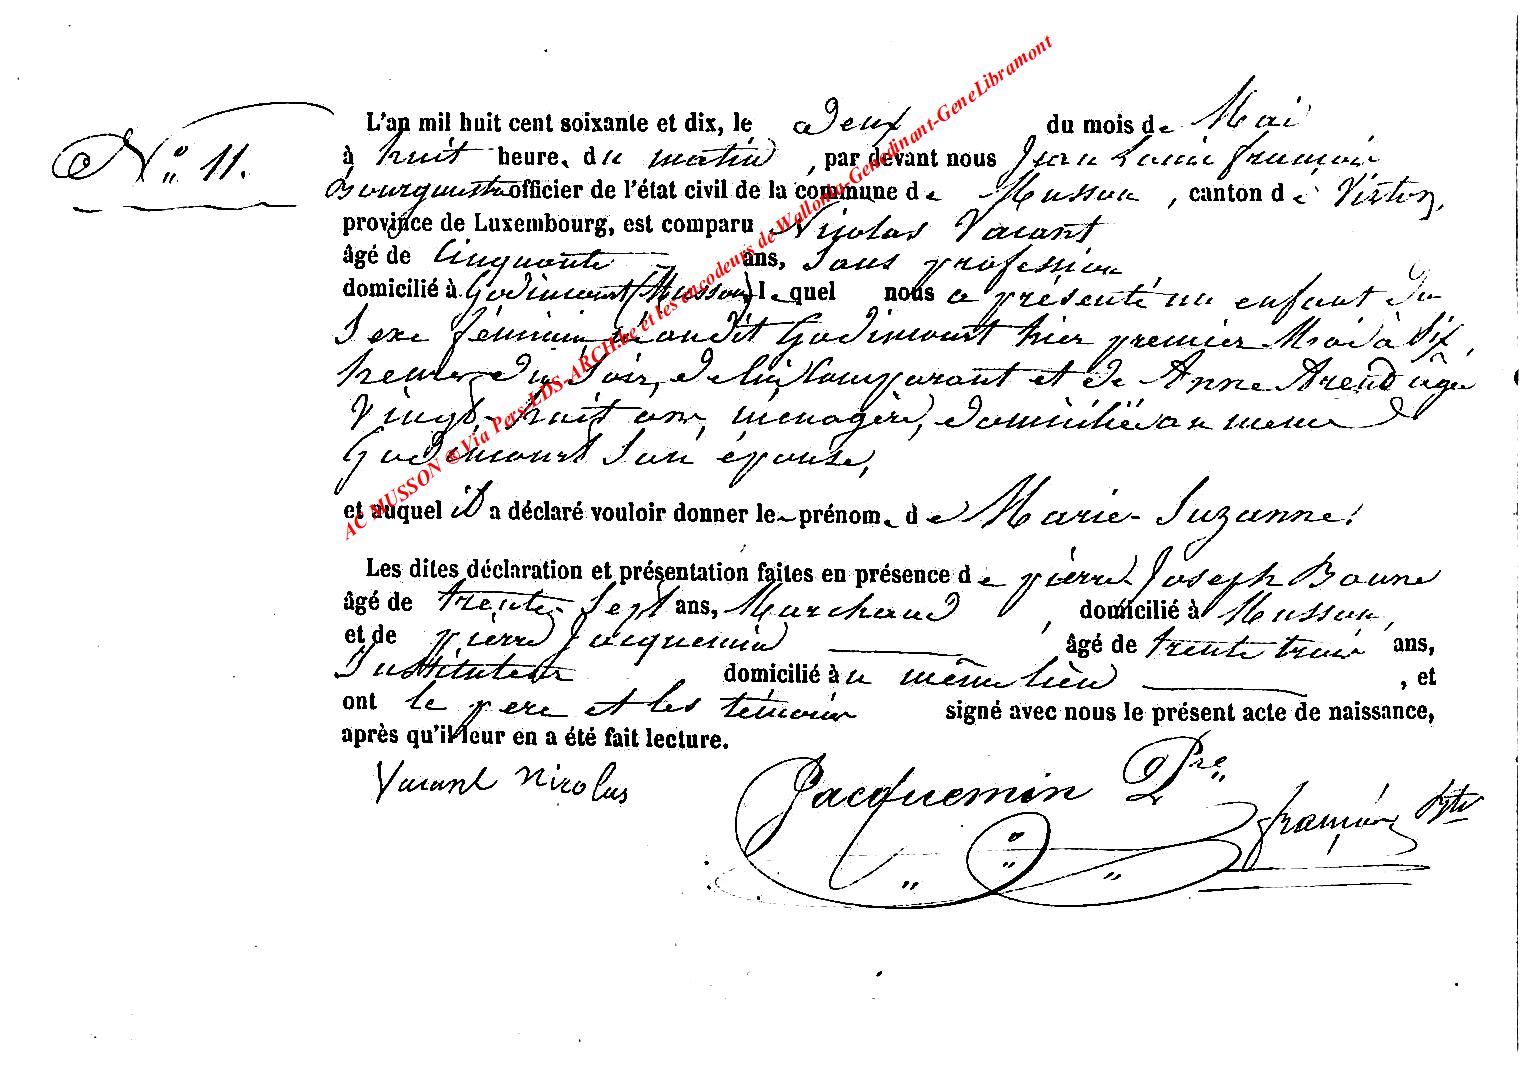 N° 11.
L'an mil huit cent soixante et dix, le deux du mois de Mai
à huit heures du matin, par devant nous Jean Louis françois
Bourgmestre officier de l'état civil de la commune de Musson, canton de Virton,
province de Luxembourg, est comparu Nicolas Vacant
âgé de Cinquante ans, Sans profession,
domicilié à Godincourt (Musson) lequel nous a présenté un enfant du
Sexe féminin, né audit Godincourt hier premier Mai à Six
heures du Soir, de lui Comparant et de Anne Arend âgée
Vingt-huit ans, ménagère, domiciliée au même
Godincourt Son épouse,
et auquel il a déclaré vouloir donner le prénom de Marie-Suzanne.
Les dites déclaration et présentation faites en présence de pierre Joseph
âgé de trente-Sept ans, Marchand, domicilié à Musson,
et de pierre Jacquemin âgé de trente trois ans,
Instituteur domicilié au même lieu, et
ont le père et les témoins signé avec nous le présent acte de naissance,
après qu'il leur en a été fait lecture.
Vacant Nicolas
Jacquemin Pre
françois
AC MUSSON © Via Pers-LDS-ARCH.be et les encodeurs de Wallonia-Genedinant-GeneLibramont